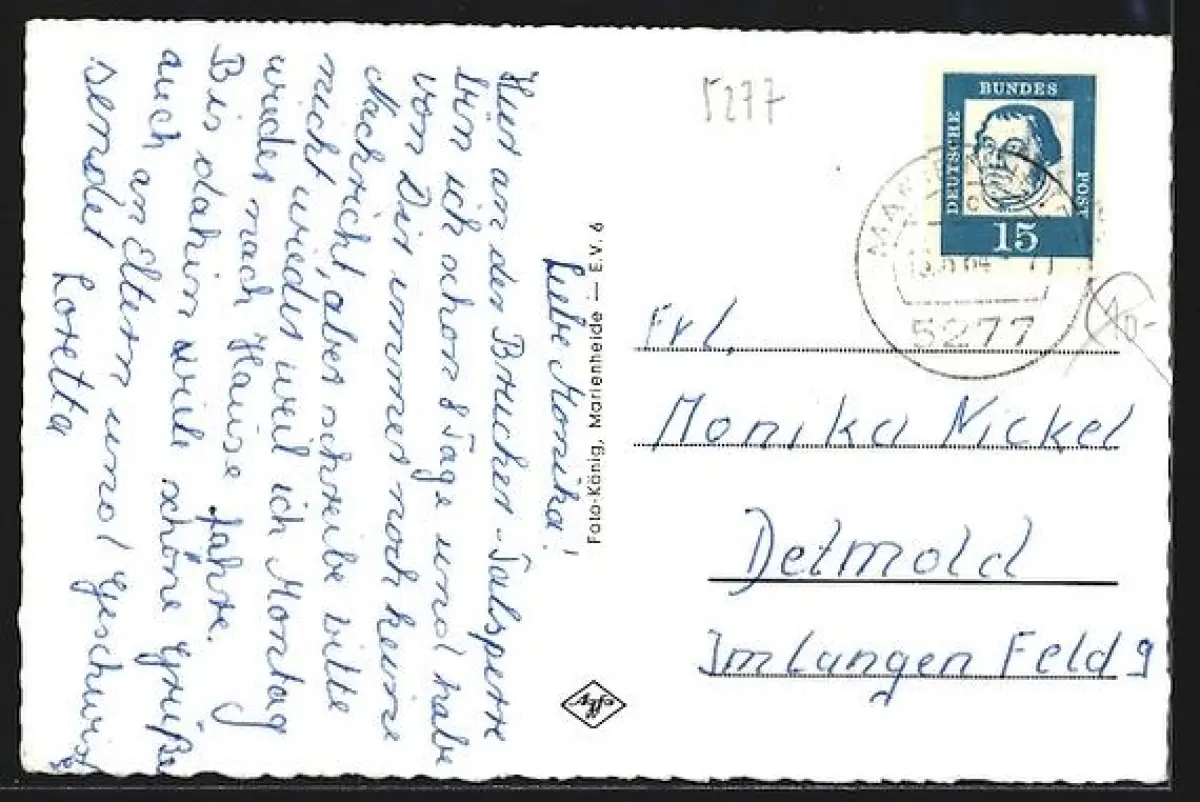 Liebe Monika!
Hier an der Brucher-Talsperre
bin ich schon 8 Tage und habe
von Dir immer noch keine
Nachricht, aber schreibe bitte
nicht wieder weil ich Montag
wieder nach Hause fahre.
Bis dahin viele schöne Grüße
auch an Eltern und Geschwist
sendet Loretta
Foto-König, Marienheide — E.V. 6
5277
DEUTSCHE BUNDES POST
15
5277
Frl.
Monika Nickel
Detmold
Im langen Feld 9